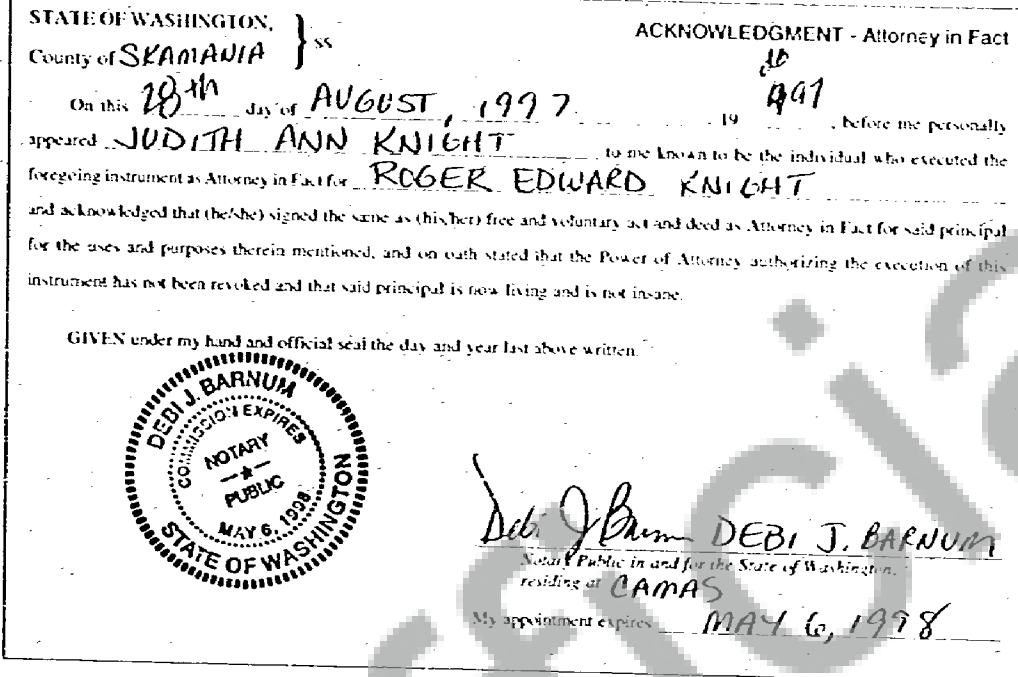 STATE OF WASHINGTON,
County of SKAMANIA } ss
ACKNOWLEDGMENT - Attorney in Fact
On this 28th day of AUGUST, 1997 19 1997, before me personally
appeared JUDITH ANN KNIGHT to me known to be the individual who executed the
foregoing instrument as Attorney in Fact for ROGER EDWARD KNIGHT
and acknowledged that (he/she) signed the same as (his/her) free and voluntary act and deed as Attorney in Fact for said principal
for the uses and purposes therein mentioned, and on oath stated that the Power of Attorney authorizing the execution of this
instrument has not been revoked and that said principal is now living and is not insane.
GIVEN under my hand and official seal the day and year last above written.
DEBI J. BARNUM
COMMISSION EXPIRES
NOTARY
PUBLIC
MAY 6, 1998
STATE OF WASHINGTON
Debi J Barnum DEBI J. BARNUM
Notary Public in and for the State of Washington,
residing at CAMAS
My appointment expires MAY 6, 1998